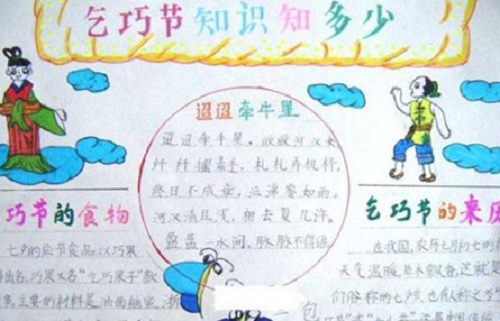 乞巧节知识知多少
迢迢牵牛星
迢迢牵牛星。皎皎河汉女
纤纤擢素手,札札弄机杼。
终日不成章,泣涕零如雨。
河汉清且浅,相去复几许。
盈盈一水间,脉脉不得语。
巧节的食物
七夕的应节食品,以巧果
出名,巧果又名"乞巧果子"款
多,主要的材料是油面糖蜜。浙
乞巧节的来历
在我国,农历七月初七的
天气温暖,草木飘香,这就是
们俗称的七夕节,也有人称之